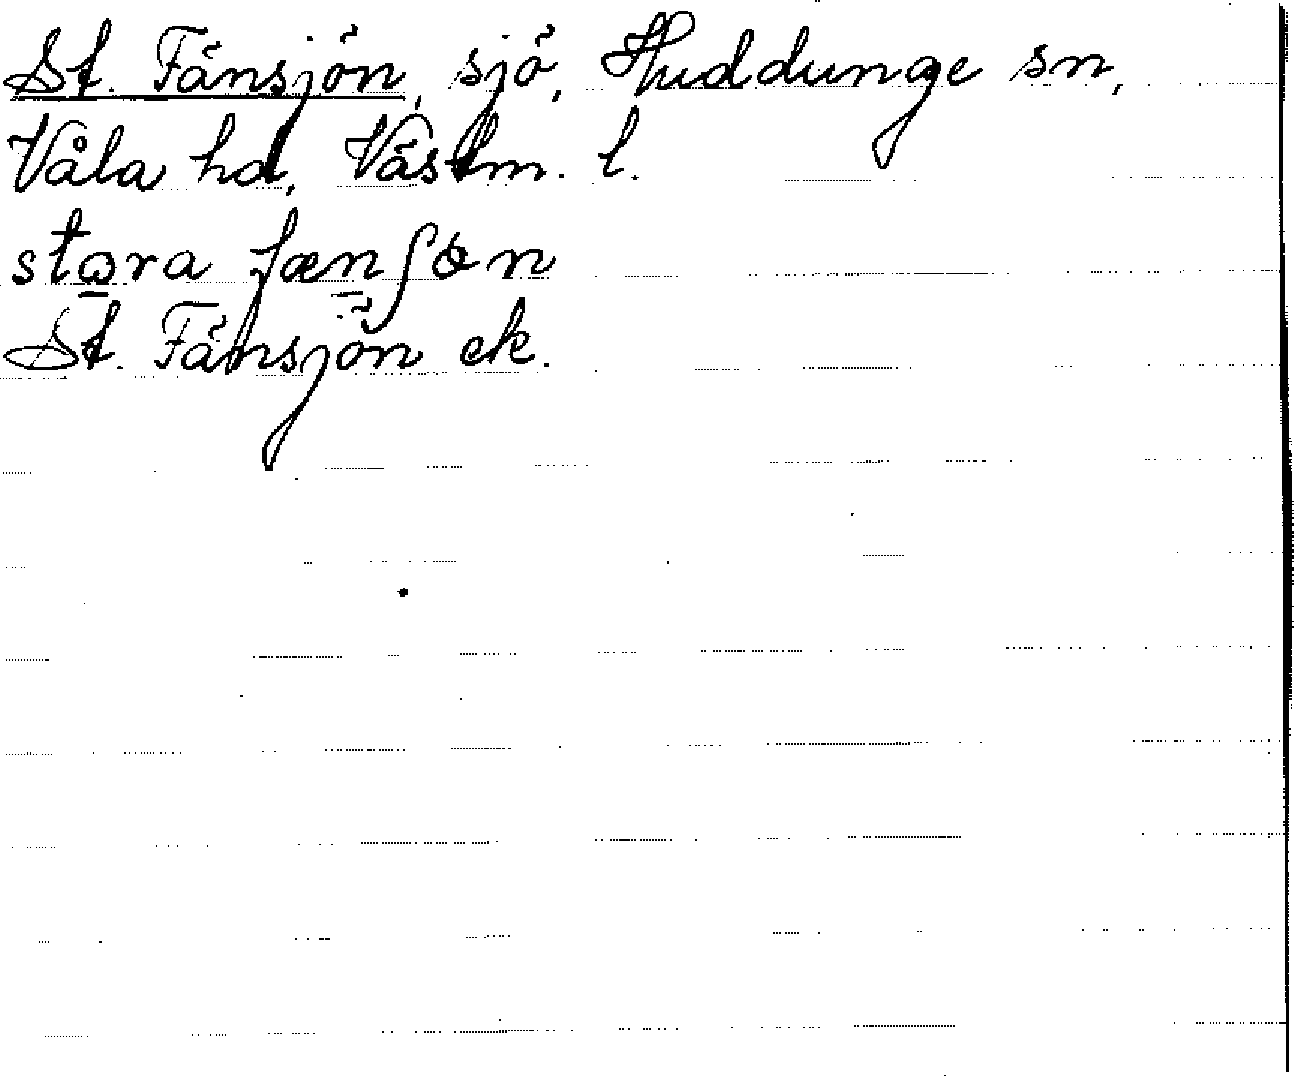 St. Fänsjön, sjö, Huddunge sn,
Våla hd, Västm. l.
stɷra fænʃɵn
St. Fänsjön ek.